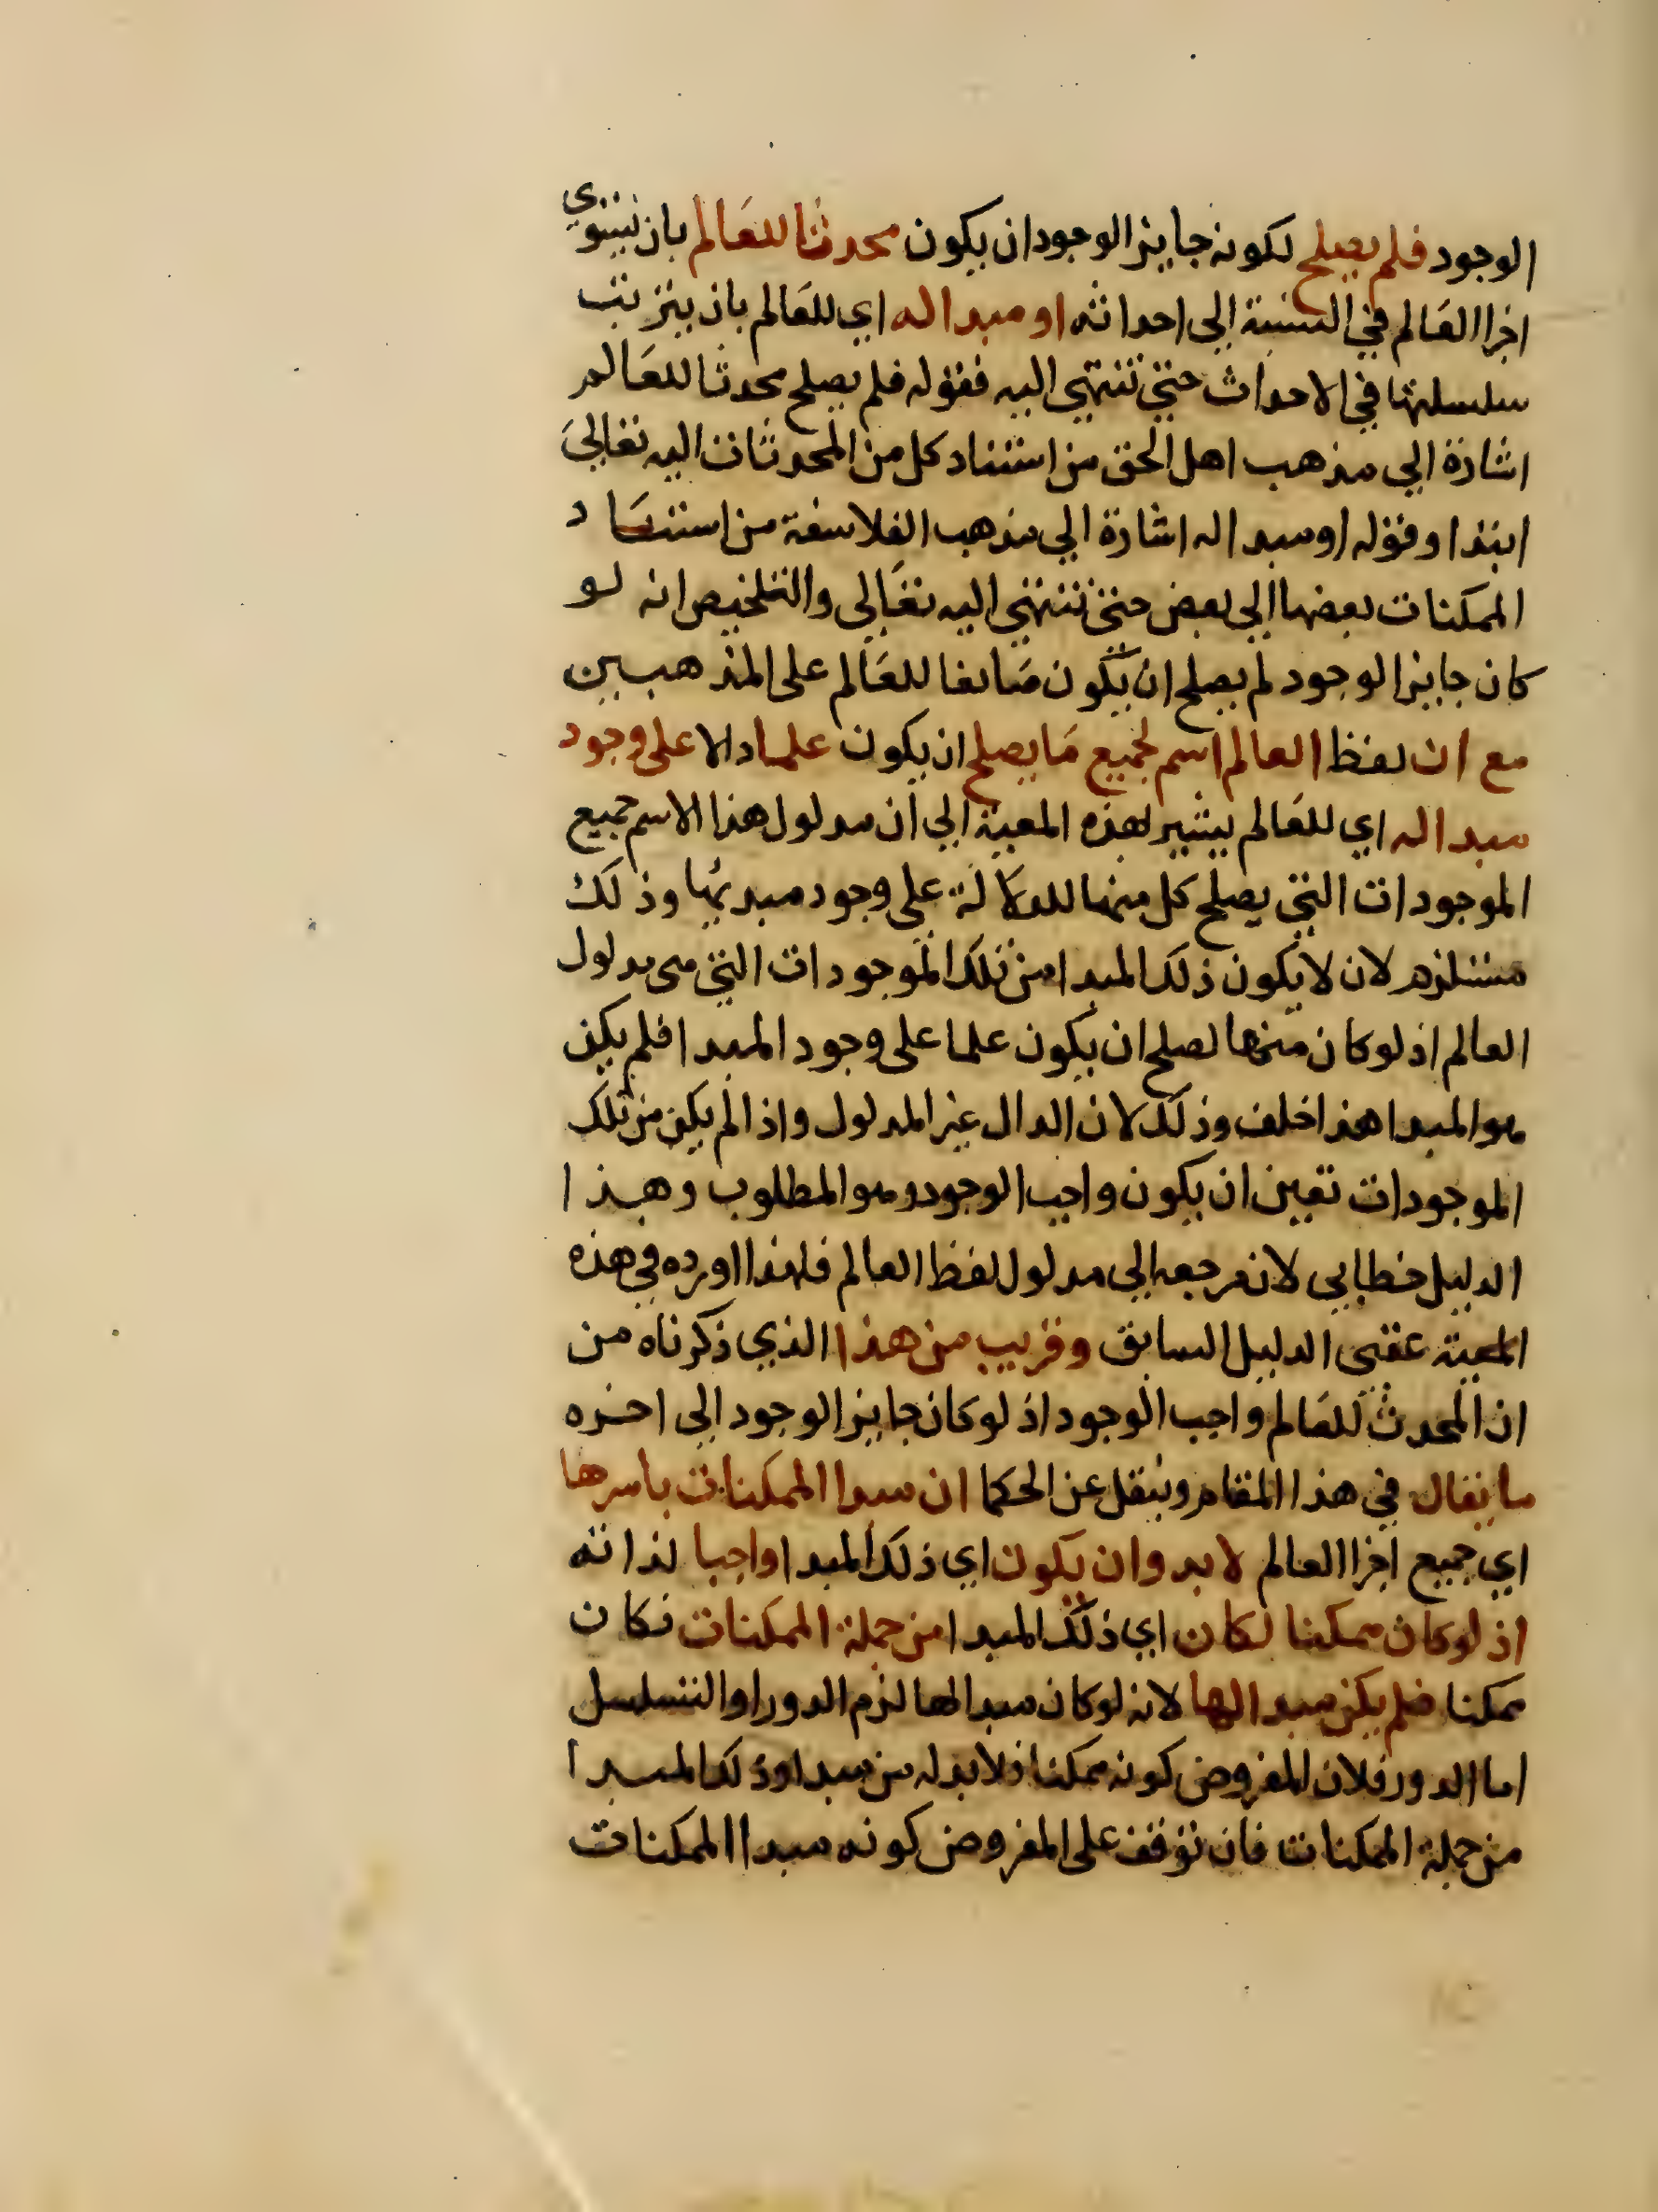 الوجود فلم يصلح لكونه جايز الوجود ان يكون محدثا للعالم بان تستوي
اجزا العالم في النسبة إلى احداثه او مبدا له اي للعالم بان يترتب
سلسلتها في الاحداث حتى تنتهي اليه فقوله فلم يصلح محدثا للعالم
اشارة الي مذهب اهل الحق من استناد كل من المحدثات اليه تعالي
ابتدا وقوله او مبدا له اشارة الي مذهب الفلاسفة من استناد
الممكنات بعضها الي بعض حتى تنتهي اليه تعالى والتلخيص انه لو
كان جايز الوجود لم يصلح ان يكون صانعا للعالم على المذهبين
مع ان لفظ العالم اسم لجميع ما يصلح ان يكون علما دالا على وجود
مبدا له اي للعالم يشير لهذه المعية الي ان مدلول هذا الاسم جميع
الموجودات التي يصلح كل منها للدلالة على وجود مبديها وذلك
مستلزم لان لا يكون ذلك المبدا من تلك الموجودات التي هى مدلول
العالم اذ لو كان منها لصلح ان يكون علما على وجود المبدا فلم يكن
هو المبدا هذا خلف وذلك لان الدال غير المدلول واذا لم يكن من تلك
الموجودات تعين ان يكون واجب الوجود وهو المطلوب وهذا
الدليل خطابي لانه رجعه الي مدلول لفظ العالم فلهذا اورده في هذه
المعية عقبى الدليل السابق وقريب من هذا الذي ذكرناه من
ان المحدث للعالم واجب الوجود اذ لو كان جايز الوجود الى اخره
ما يقال في هذا المقام وينقل عن الحكما ان مبدا الممكنات باسرها
اي جميع اجزا العالم لا بد وان يكون اي ذلك المبدا واجبا لذاته
اذ لو كان ممكنا لكان اي ذلك المبدا من جملة الممكنات فكان
ممكنا فلم يكن مبدا لها لانه لو كان مبدا لها لزم الدور او التسلسل
اما الدور فلان المفروض كونه ممكنا فلا بد له من مبدا وذلك المبدا
من جملة الممكنات فان توقف على المفروض كونه مبدا الممكنات